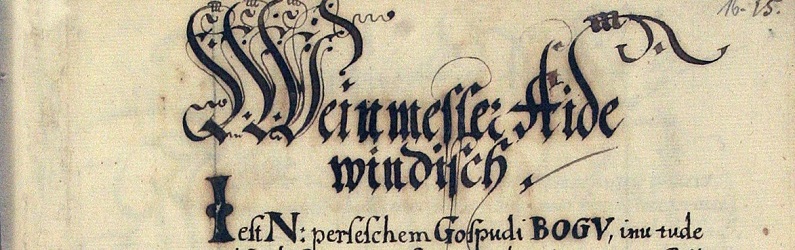 16-15.
Weinmesser Aide
windisch.
Iest N: perseschem Gospudi BOGV, inu tude